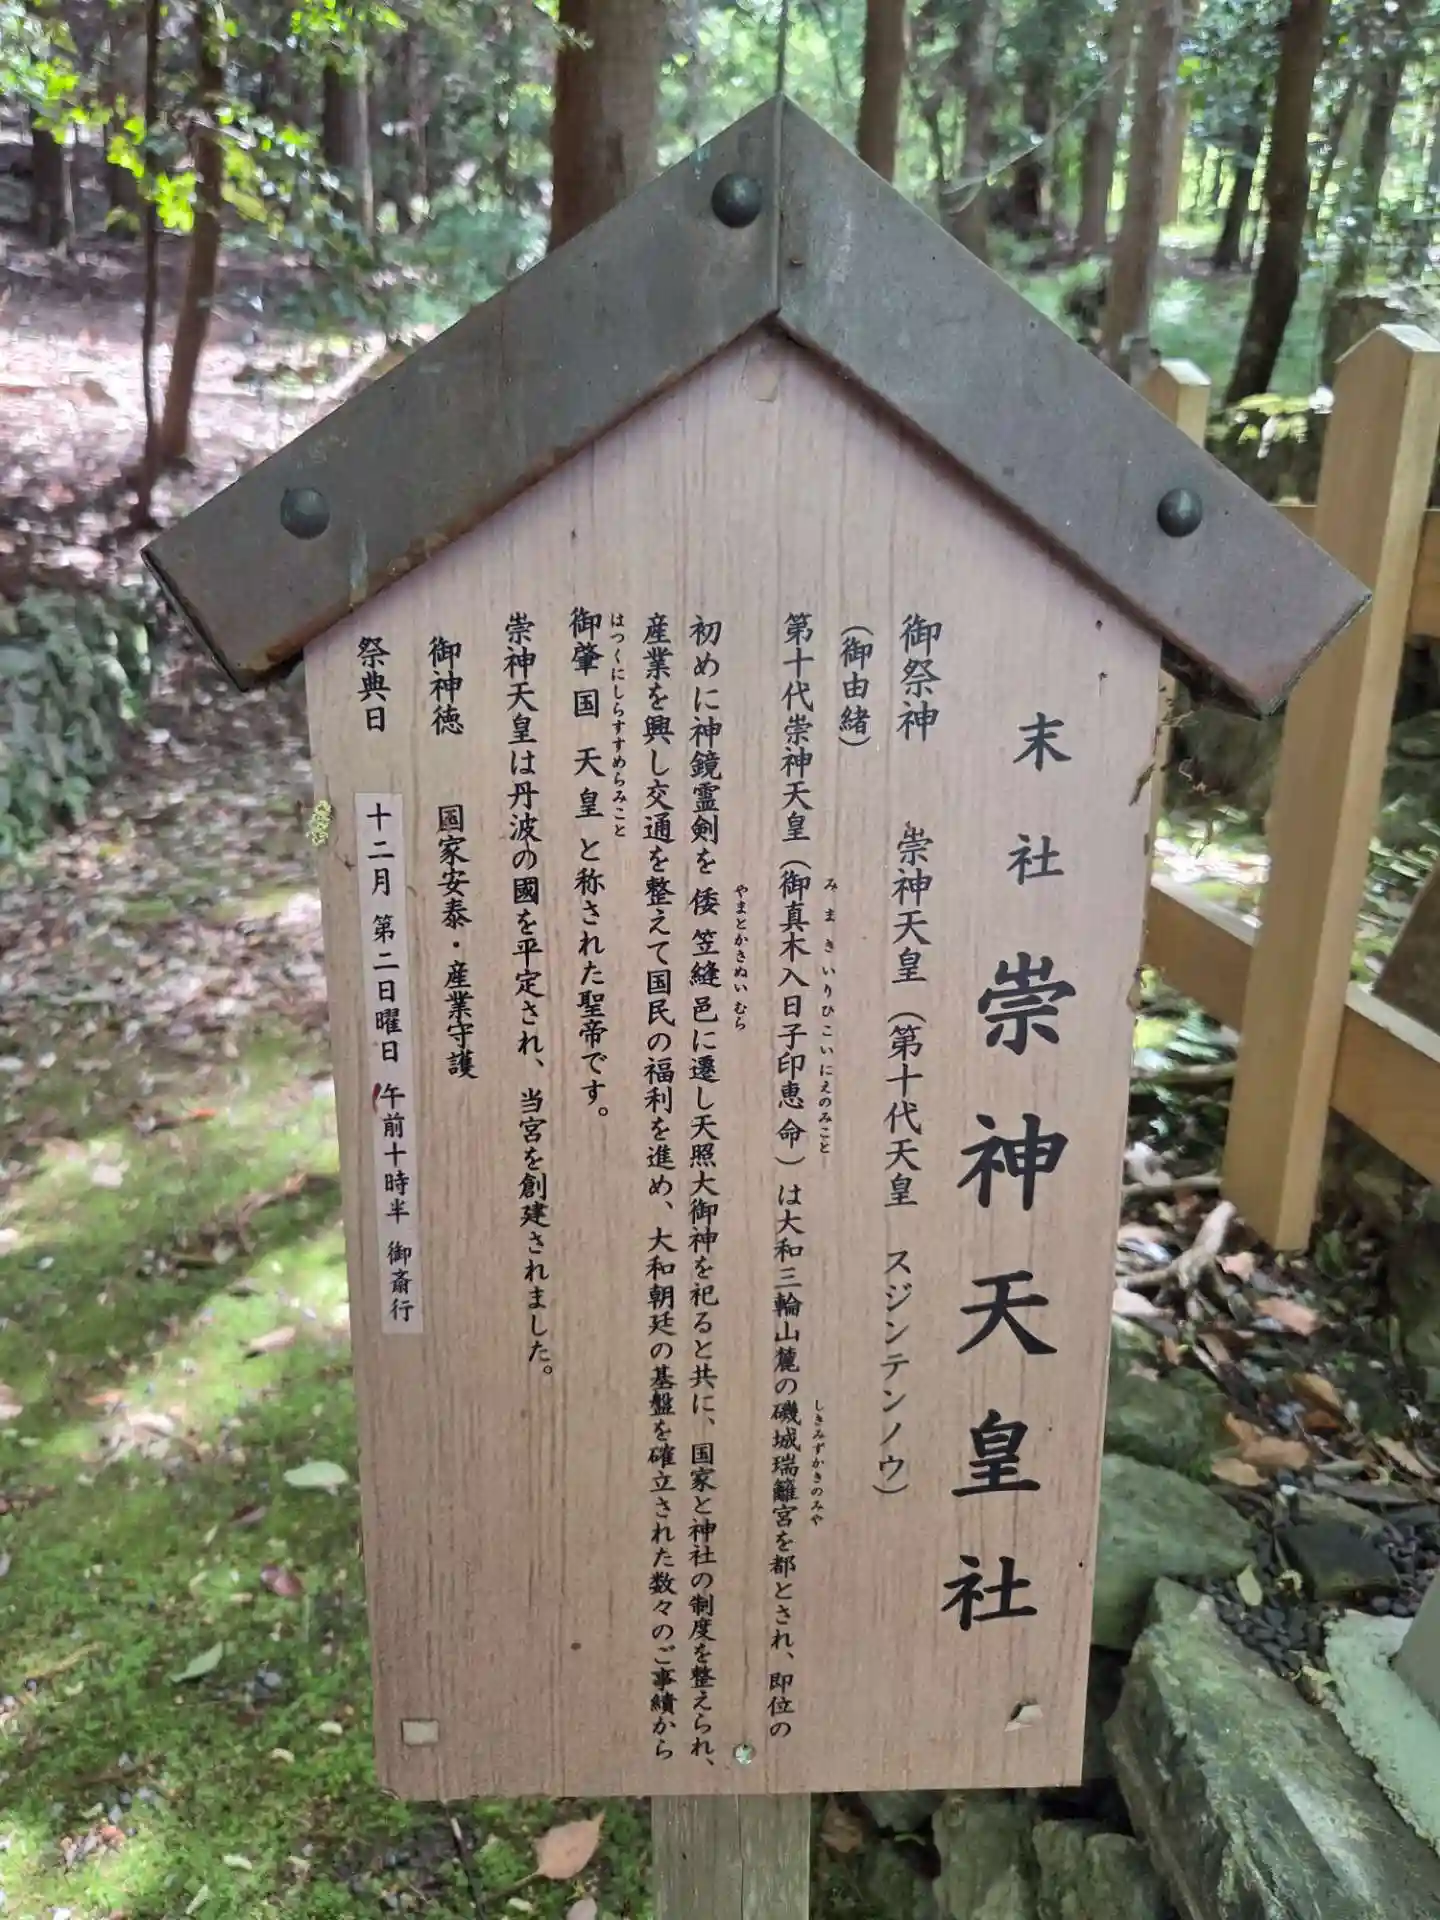 末社 崇神天皇社
御祭神 崇神天皇(第十代天皇 スジンテンノウ)
(御由緒)
みまきいりひこいにえのみこと しきみずかきのみや
第十代崇神天皇(御真木入日子印恵命)は大和三輪山麓の磯城瑞籬宮を都とされ、即位の
やまとかさぬいむら
初めに神鏡霊剣を倭笠縫邑に遷し天照大御神を祀ると共に、国家と神社の制度を整えられ、
産業を興し交通を整えて国民の福利を進め、大和朝廷の基盤を確立された数々のご事績から
はつくにしらすすめらみこと
御肇国天皇と称された聖帝です。
崇神天皇は丹波の國を平定され、当宮を創建されました。
御神徳 国家安泰・産業守護
祭典日 十二月 第二日曜日 午前十時半 御斎行